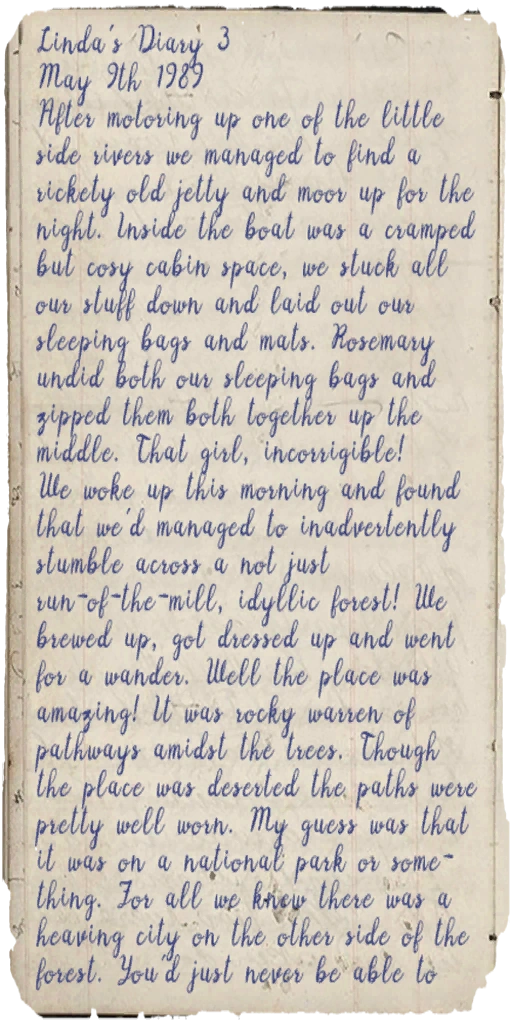 Linda's Diary 3
May 9th 1989
After motoring up one of the little
side rivers we managed to find a
rickety old jetty and moor up for the
night. Inside the boat was a cramped
but cosy cabin space, we stuck all
our stuff down and laid out our
sleeping bags and mats. Rosemary
undid both our sleeping bags and
zipped them both together up the
middle. That girl, incorrigible!
We woke up this morning and found
that we'd managed to inadvertently
stumble across a not just
run-of-the-mill, idyllic forest! We
brewed up, got dressed up and went
for a wander. Well the place was
amazing! It was rocky warren of
pathways amidst the trees. Though
the place was deserted the paths were
pretty well worn. My guess was that
it was on a national park or some-
thing. For all we knew there was a
heaving city on the other side of the
forest. You'd just never be able to